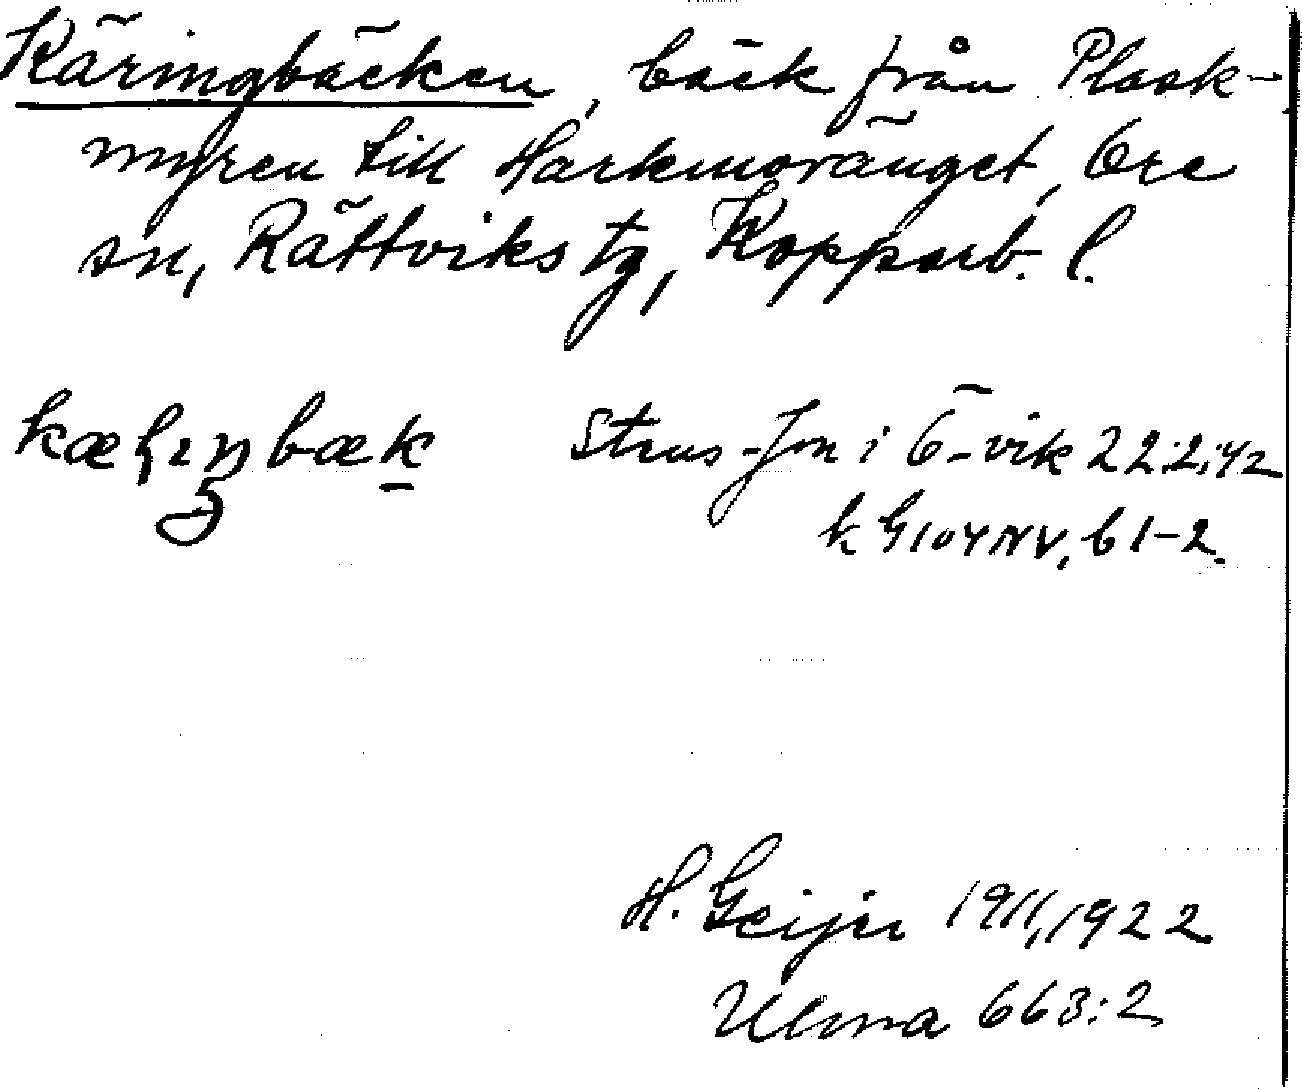 Käringbäcken, bäck från Plask-
myren till Harkmoränget, Ore
sn, Rättviks tg, Kopparb. l.
bæk
Strus-Jon i Ö-vik 22.2.42
k G 104 NV, b 1-2.
H. Geijer 1911, 1922
Ulma 663:2